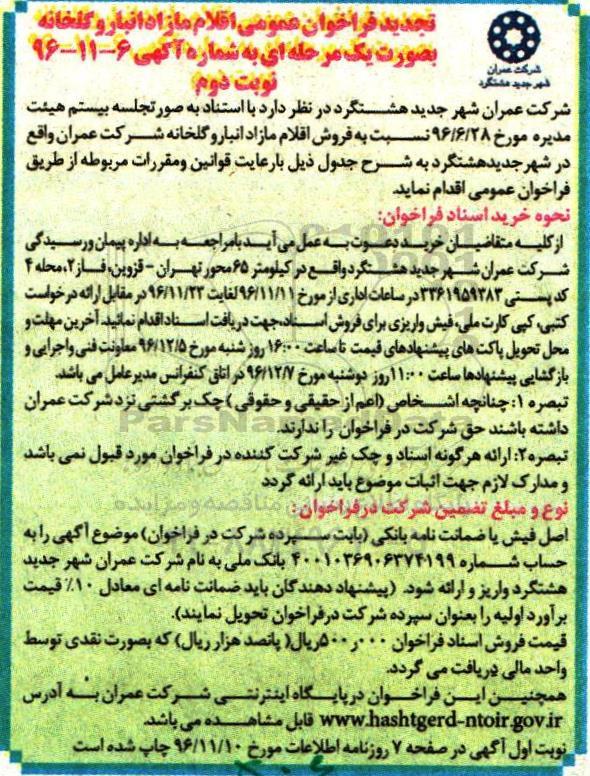 تجدید فراخوان عمومی اقلام مازاد انبار و گلخانه
بصورت یک مرحله ای به شماره آگهی ۶-۱۱-۹۶
نوبت دوم
شرکت عمران
شهر جدید هشتگرد
شرکت عمران شهر جدید هشتگرد در نظر دارد با استناد به صورتجلسه بیستم هیئت
مدیره مورخ ۹۶/۶/۲۸ نسبت به فروش اقلام مازاد انبار و گلخانه شرکت عمران واقع
در شهر جدید هشتگرد به شرح جدول ذیل با رعایت قوانین و مقررات مربوطه از طریق
فراخوان عمومی اقدام نماید.
نحوه خرید اسناد فراخوان:
از کلیه متقاضیان خرید دعوت به عمل می آید با مراجعه به اداره پیمان و رسیدگی
شرکت عمران شهر جدید هشتگرد واقع در کیلومتر ۶۵ محور تهران - قزوین، فاز ۲، محله ۴
کد پستی ۳۳۶۱۹۵۹۳۸۳ در ساعات اداری از مورخ ۹۶/۱۱/۱۱ لغایت ۹۶/۱۱/۲۳ در مقابل ارائه درخواست
کتبی، کپی کارت ملی، فیش واریزی برای فروش اسناد، جهت دریافت اسناد اقدام نمائید. آخرین مهلت و
محل تحویل پاکت های پیشنهادهای قیمت تا ساعت ۱۶:۰۰ روز شنبه مورخ ۹۶/۱۲/۵ معاونت فنی و اجرایی و
بازگشایی پیشنهادها ساعت ۱۱:۰۰ روز دوشنبه مورخ ۹۶/۱۲/۷ در اتاق کنفرانس مدیرعامل می باشد.
تبصره ۱: چنانچه اشخاص (اعم از حقیقی و حقوقی) چک برگشتی نزد شرکت عمران
داشته باشند حق شرکت در فراخوان را ندارند.
تبصره ۲: ارائه هرگونه اسناد و چک غیر شرکت کننده در فراخوان مورد قبول نمی باشد
و مدارک لازم جهت اثبات موضوع باید ارائه گردد
نوع و مبلغ تضمین شرکت در فراخوان:
اصل فیش یا ضمانت نامه بانکی (بابت سپرده شرکت در فراخوان) موضوع آگهی را به
حساب شماره ۴۰۰۱۰۳۶۹۰۶۳۷۴۱۹۹ بانک ملی به نام شرکت عمران شهر جدید
هشتگرد واریز و ارائه شود. (پیشنهاد دهندگان باید ضمانت نامه ای معادل ۱۰٪ قیمت
برآورد اولیه را بعنوان سپرده شرکت در فراخوان تحویل نمایند).
قیمت فروش اسناد فراخوان ۵۰۰,۰۰۰ ریال( پانصد هزار ریال) که بصورت نقدی توسط
واحد مالی دریافت می گردد.
همچنین این فراخوان در پایگاه اینترنتی شرکت عمران به آدرس
www.hashtgerd-ntoir.gov.ir قابل مشاهده می باشد.
نوبت اول آگهی در صفحه ۷ روزنامه اطلاعات مورخ ۹۶/۱۱/۱۰ چاپ شده است